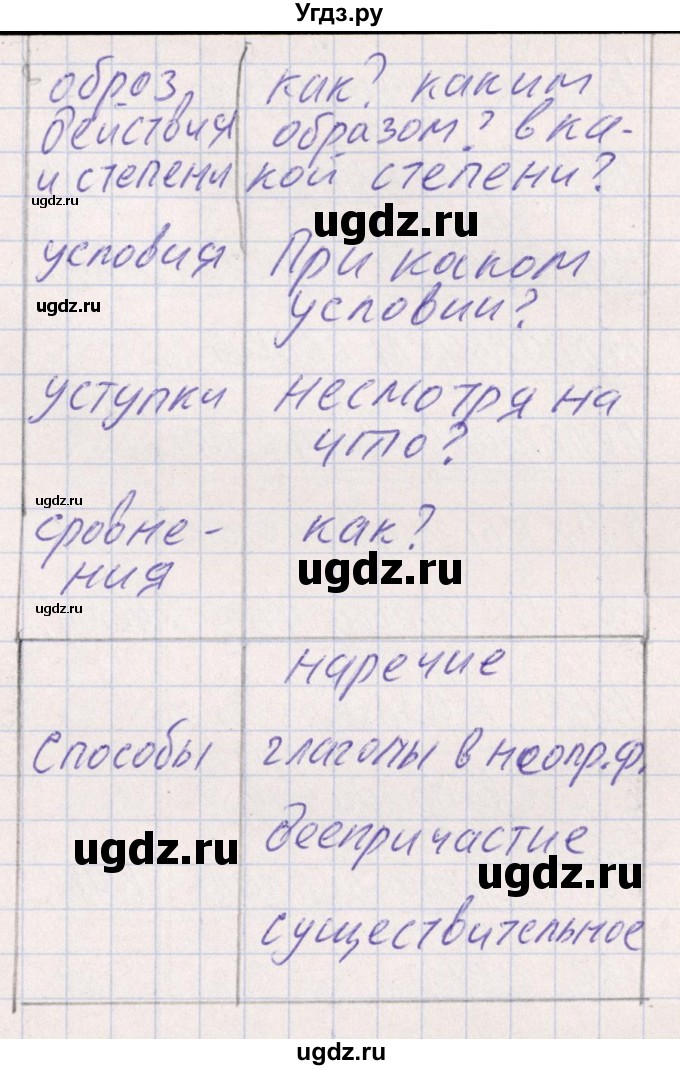 Угдз.ру
образ как? каким
действия образом? в ка-
и степени кой степени?
ugdz.ru
ugdz.ru
условия При каком
ugdz.ru условии?
уступки несмотря на
что?
ugdz.ru
сровне- как?
ния ugdz.ru
ugdz.ru
наречие
Способы глаголы в неопр.ф.
ugdz.ru деепричастие
ugdz.ru
существительное
ugdz.ru